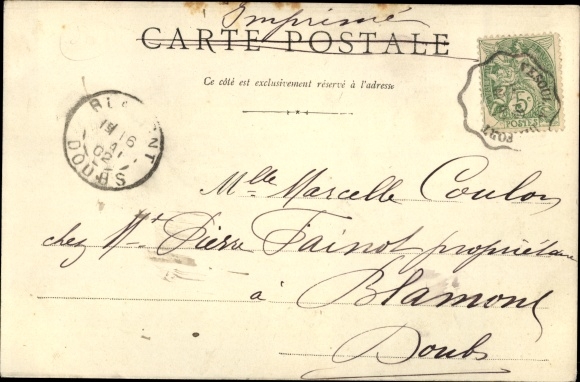 Imprimé
CARTE POSTALE
Ce côté est exclusivement réservé à l'adresse
5c
POSTES
VESOUL
PORT
BLAMONT
16
02
DOUBS
Mlle Marcelle Coulon
chez Mr Pierre Fainot propriétaire
à Blamont
Doubs